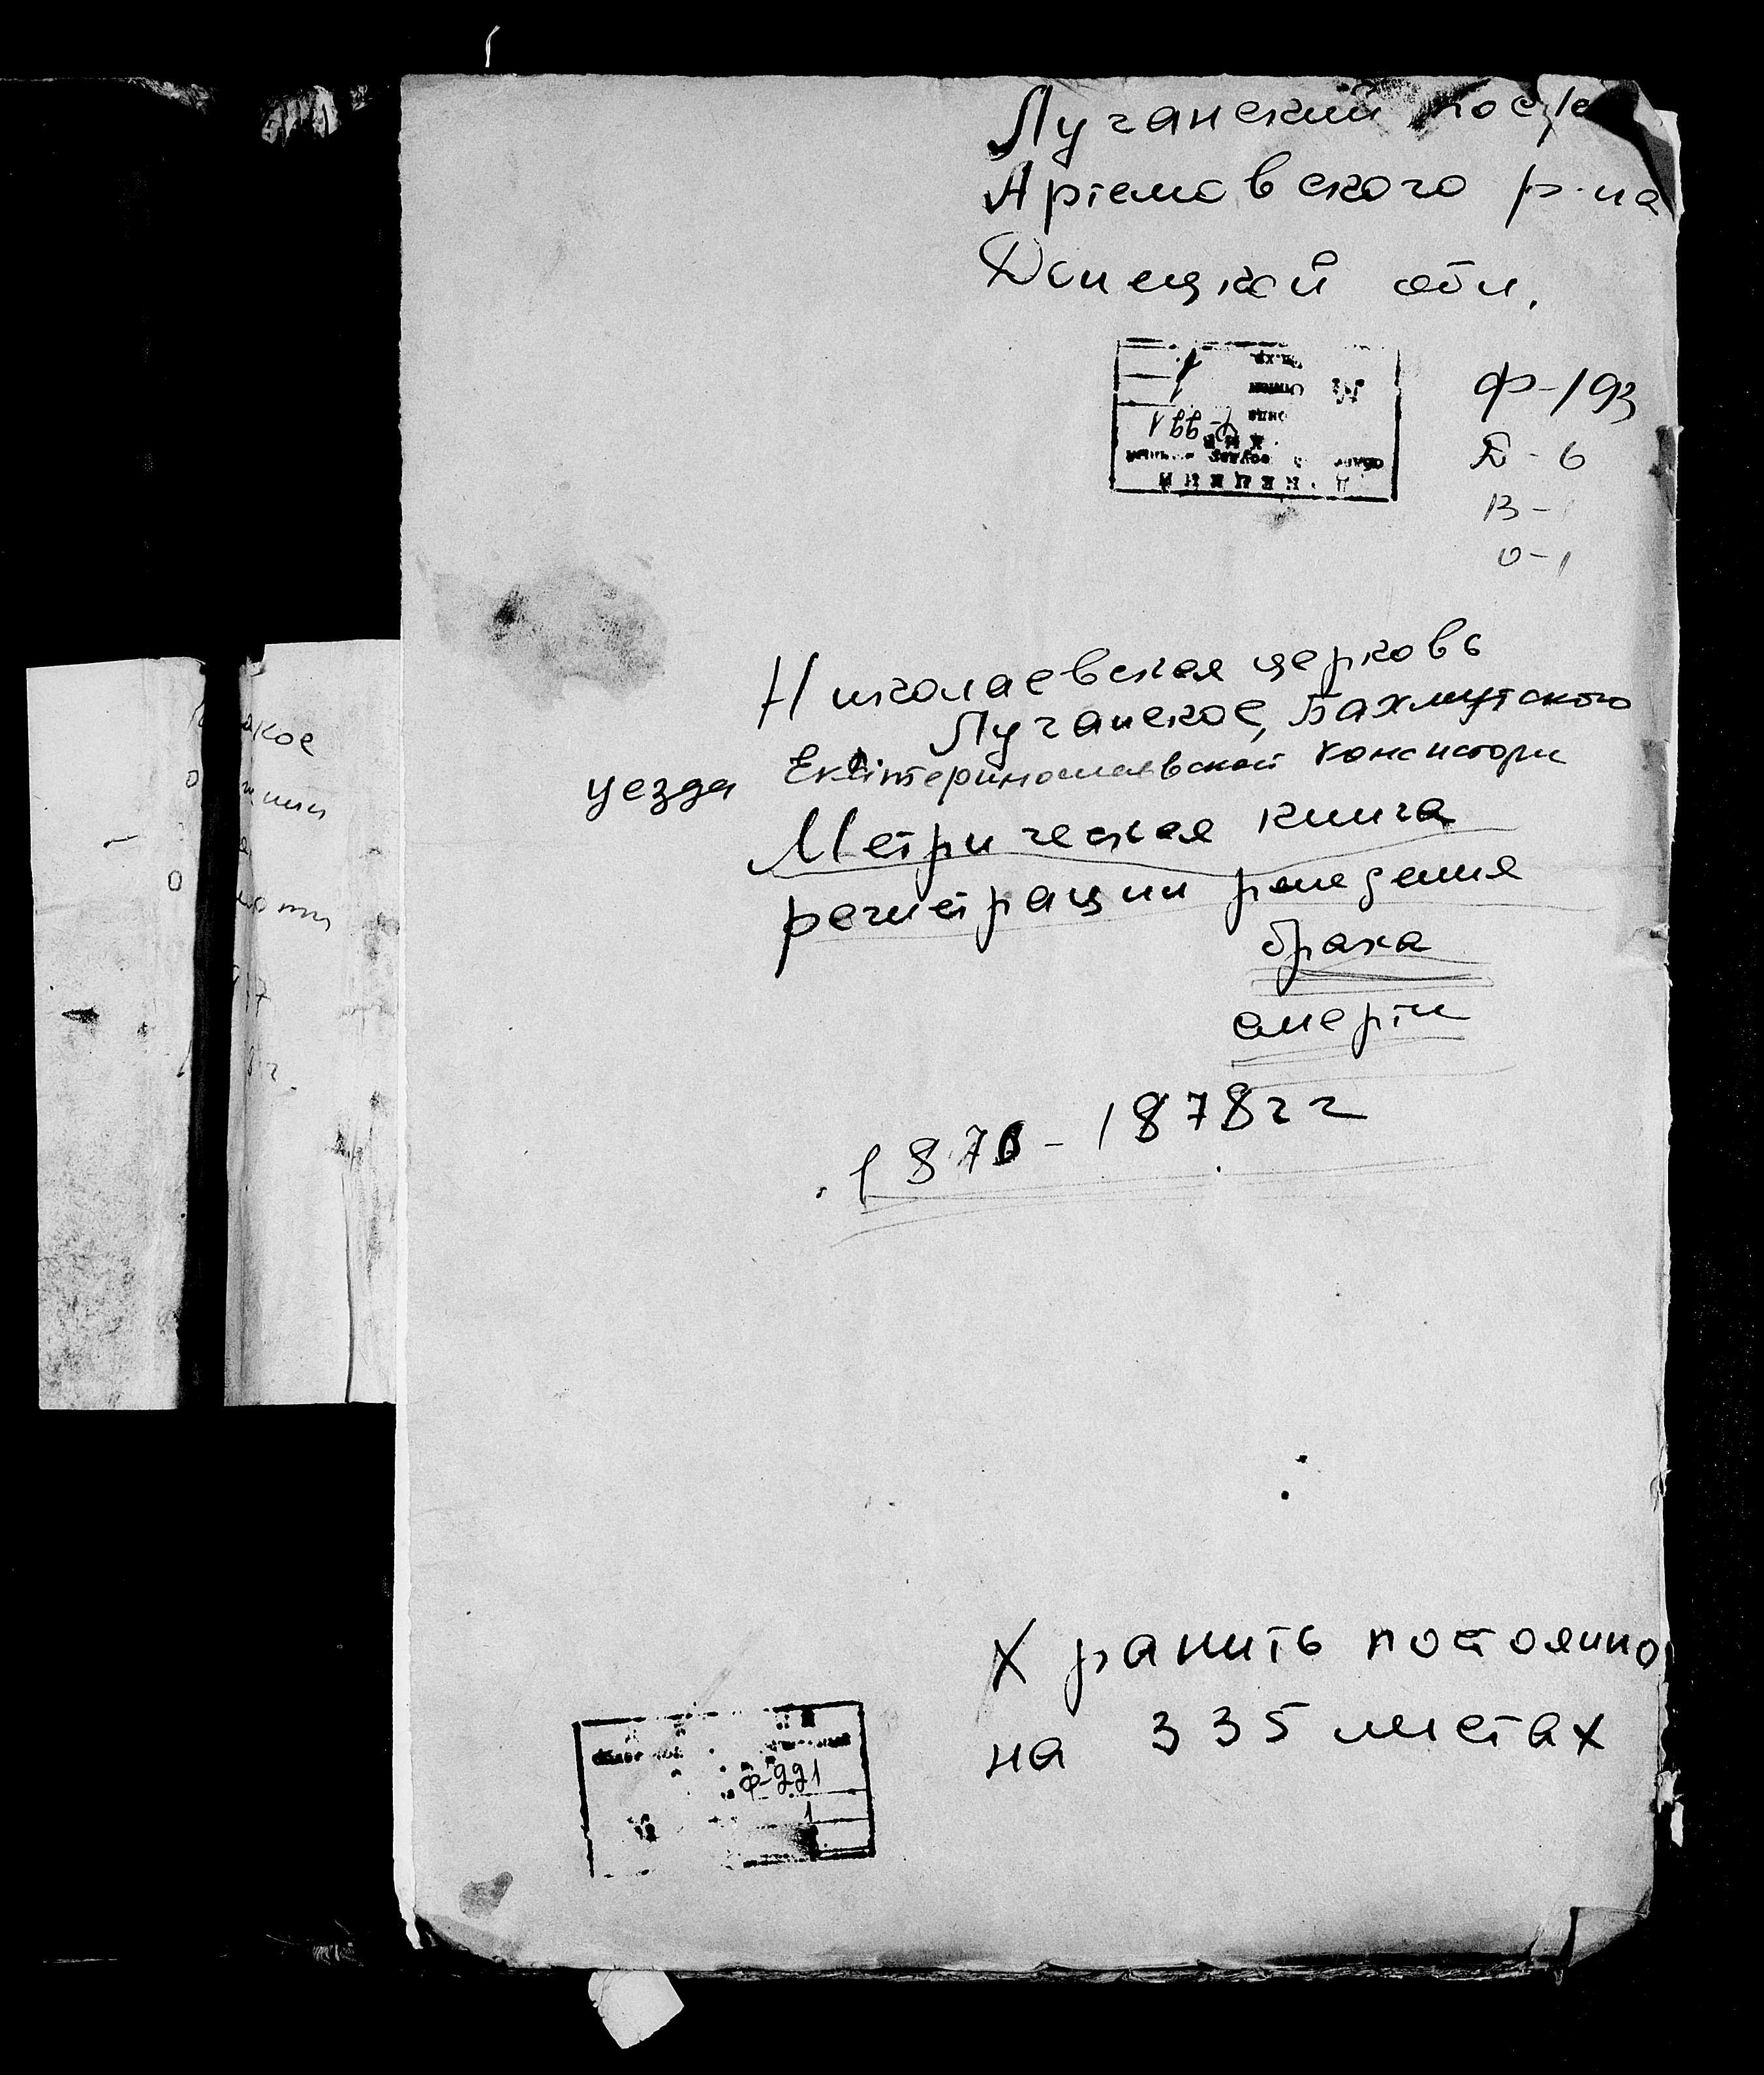 Луганский пос/с
Артемовского р-на
Донецкой обл.
Ф-193
Д-6
В-
О-1
Ф-991
1
Николаевская церковь
Луганское, Бахмутского
уезда Екатеринославской консистори
Метрическая книга
регистрации рождения
брака
смерти
1876-1878гг
Хранить постоянно
на 335 листах
Ф-991
1